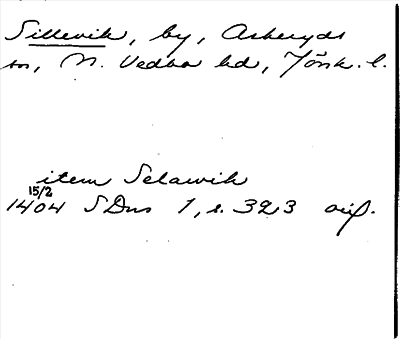 Sillevik, by, Asberyds
sn, N. Vedbo hd, Jönk. l.
item Selawik
15/2
1404 SDns 1, s. 323 orig.